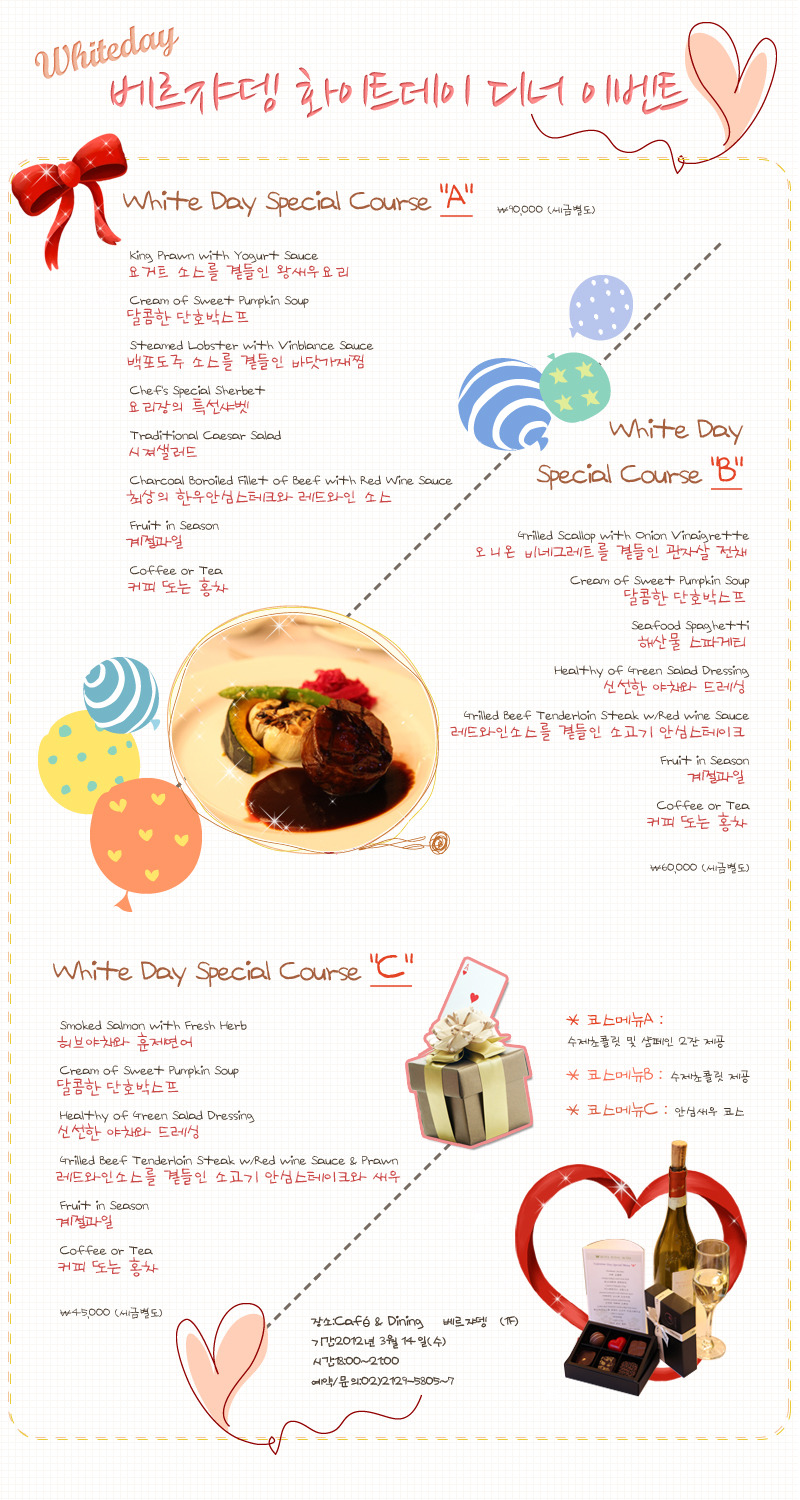 Whiteday
베르쟈뎅 화이트데이 디너 이벤트
White Day Special Course "A" ₩90,000 (세금별도)
King Prawn with Yogurt Sauce
요거트 소스를 곁들인 왕새우요리
Cream of Sweet Pumpkin Soup
달콤한 단호박스프
Steamed Lobster with Vinblance Sauce
백포도주 소스를 곁들인 바닷가재찜
Chef's Special Sherbet
요리장의 특선샤벳
Traditional Caesar Salad
시져샐러드
Charcoal Boroiled Fillet of Beef with Red Wine Sauce
최상의 한우안심스테크와 레드와인 소스
Fruit in Season
계절과일
Coffee or Tea
커피 또는 홍차
White Day
Special Course "B"
Grilled Scallop with Onion Vinaigrette
오니온 비네그레트를 곁들인 관자살 전채
Cream of Sweet Pumpkin Soup
달콤한 단호박스프
Seafood Spaghetti
해산물 스파게티
Healthy of Green Salad Dressing
신선한 야채와 드레싱
Grilled Beef Tenderloin Steak w/Red wine Sauce
레드와인소스를 곁들인 소고기 안심스테이크
Fruit in Season
계절과일
Coffee or Tea
커피 또는 홍차
₩60,000 (세금별도)
White Day Special Course "C"
Smoked Salmon with Fresh Herb
허브야채와 훈제연어
Cream of Sweet Pumpkin Soup
달콤한 단호박스프
Healthy of Green Salad Dressing
신선한 야채와 드레싱
Grilled Beef Tenderloin Steak w/Red wine Sauce & Prawn
레드와인소스를 곁들인 소고기 안심스테이크와 새우
Fruit in Season
계절과일
Coffee or Tea
커피 또는 홍차
₩45,000 (세금별도)
A
* 코스메뉴A :
수제초콜릿 및 샴페인 2잔 제공
* 코스메뉴B : 수제초콜릿 제공
* 코스메뉴C : 안심새우 코스
장소:Café & Dining 베르쟈뎅 (1F)
기간:2012년 3월 14일(수)
시간:18:00~21:00
예약/문의:02)2129-5805~7